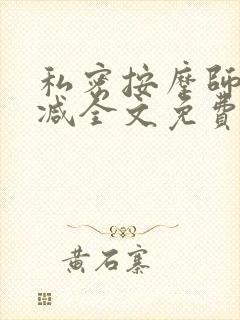 私密按摩師
减全文免費
黄石寨